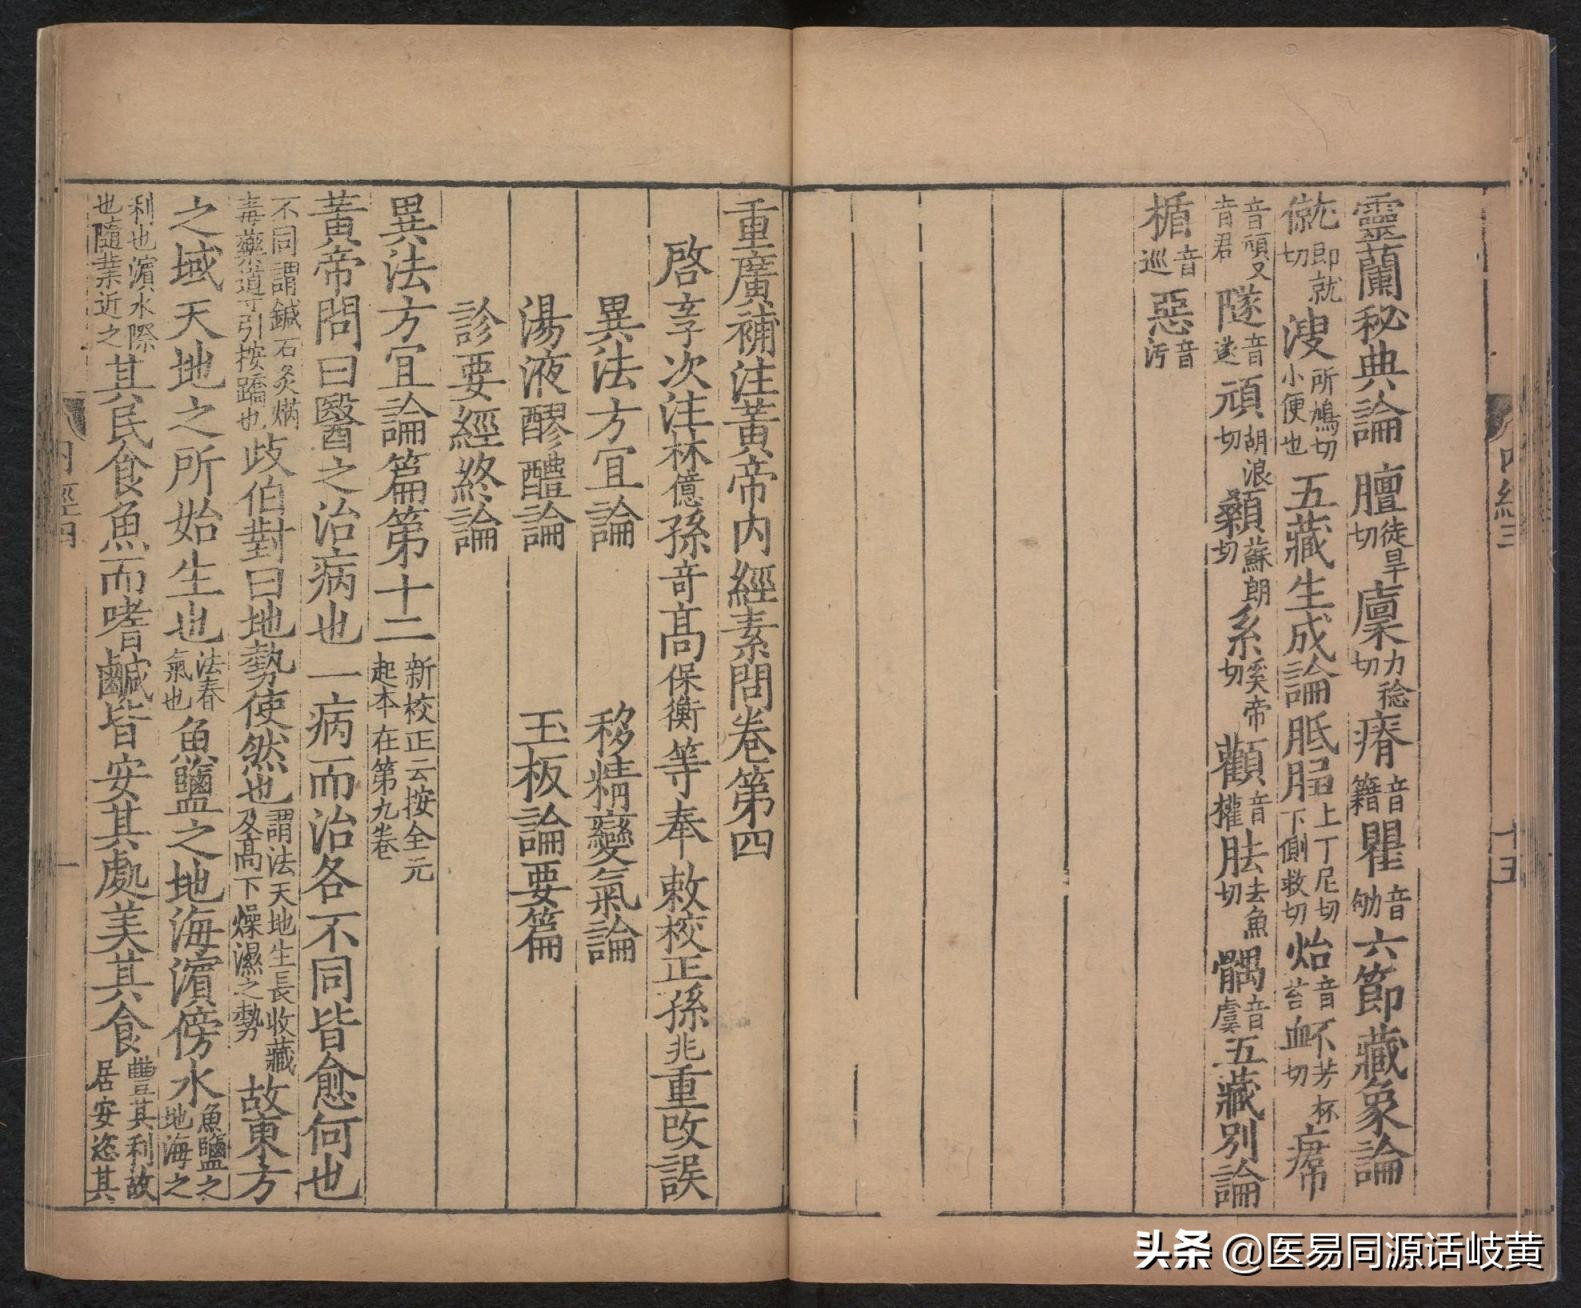 靈蘭秘典論 膻徒旱切 廩力稔切 瘠音籍 瞿音劬 六節藏象論
僦即就切 溲所鳩切小便也 五藏生成論 胝䐢上丁尼切下側救切 炲音苔 衃芳杯切
音頏又音君 隧音遂 頏胡浪切 顙蘇朗切 系奚帝切 顴音權 胠去魚切 髃音虞 五藏別論
楯音巡 惡音污
内經三
十五
重廣補注黃帝内經素問卷第四
啓玄子次注林億孫竒高保衡等奉敕校正孫兆重改誤
異法方宜論 移精變氣論
湯液醪醴論 玉板論要篇
診要經終論
異法方宜論篇第十二新校正云按全元起本在第九卷
黃帝問曰醫之治病也一病而治各不同皆愈何也
不同謂鍼石灸焫毒藥導引按蹻也歧伯對曰地勢使然也謂法天地生長收藏及高下燥濕之勢故東方
之域天地之所始生也法春氣也魚鹽之地海濱傍水魚鹽之地海之
利也濱水際也隨業近之其民食魚而嗜鹹皆安其處美其食豐其利故居安恣其
内經四
一
头条 @医易同源话岐黄